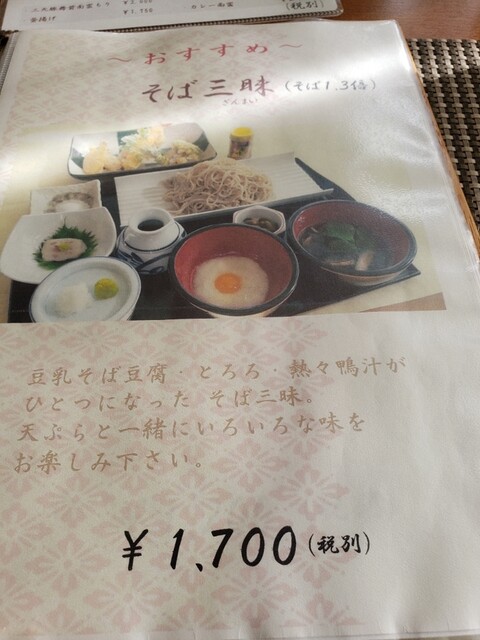 ¥1,750
カレー南蛮
釜揚げ
(税別)
～おすすめ～
そば三昧(そば1.3倍)
ざんまい
豆乳そば豆腐・とろろ・熱々鴨汁が
ひとつになった そば三昧。
天ぷらと一緒にいろいろな味を
お楽しみ下さい。
¥1,700(税別)